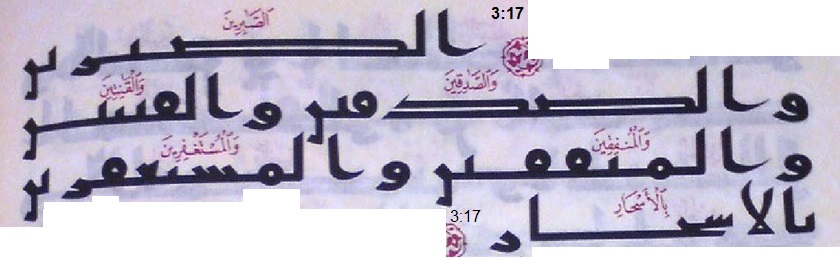 3:17
ٱلصَّٰبِرِينَ
الصبرين
وَٱلصَّٰدِقِينَ وَٱلْقَٰنِتِينَ
والصدقين والقنتين
وَٱلْمُنفِقِينَ وَٱلْمُسْتَغْفِرِينَ
والمنفقين والمستغفرين
بِٱلْأَسْحَارِ
بالاسحار
3:17